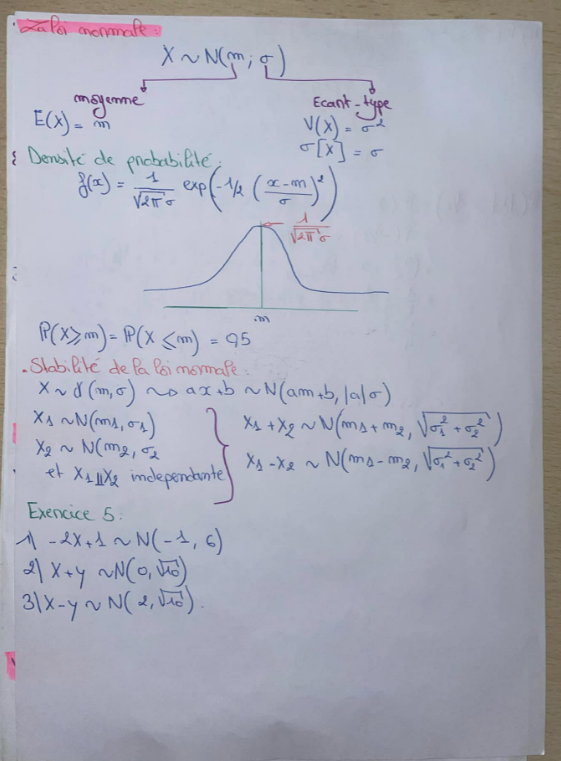 La loi normale:
X ~ N(m; σ)
moyenne
Ecart-type
E(X) = m
V(X) = σ²
σ[X] = σ
Densité de probabilité:
f(x) = 1/√2π σ exp(-1/2 (x-m/σ)²)
1/√2π σ
m
P(X ≥ m) = P(X ≤ m) = 0,5
. Stabilité de la loi normale:
X ~ γ(m, σ) ~> ax+b ~ N(am+b, |a|σ)
X1 ~ N(m1, σ1)
X2 ~ N(m2, σ2
et X1 ⫫ X2 independante
X1 + X2 ~ N(m1 + m2, √σ1² + σ2²)
X1 - X2 ~ N(m1 - m2, √σ1² + σ2²)
Exercice 5:
1) -2X+1 ~ N(-1, 6)
2) X+y ~ N(0, √10)
3) X-y ~ N(2, √10).